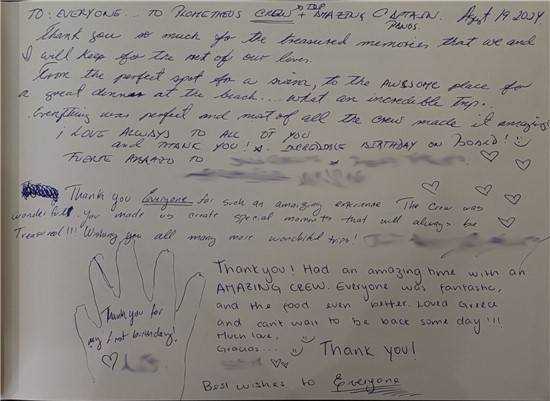 TO: EVERYONE... TO PROMETHEUS CREW + AMAZING CAPTAIN. August 19 2024
TOP
PANOS.
thank you so much for the treasured memories that we and
will keep for the rest of our lives.
from the perfect spot for a swim, to the AWESOME place for
a great dinner at the beach.... what an incredible trip..
Everything was perfect and most of all the crew made it amazing!
¡ LOVE ALWAYS TO ALL OF YOU
and THANK YOU! INCREDIBLE BIRTHDAY ON BOARD!
FUERTE ABRAZO TO
Thank you Everyone for such an amaizing experience The Crew was
wonderful. You made us create special moments that will always be
Treasured!!! Wishing you all many more wonderful trips!
Thank you for
my first birthday!
Thank you! Had an amazing time with an
AMAZING CREW. Everyone was fantastic,
and the food even better. Loved Greece
and cant wait to be back some day!!!
Much love,
Gracias...
Thank you!
Best wishes to Everyone